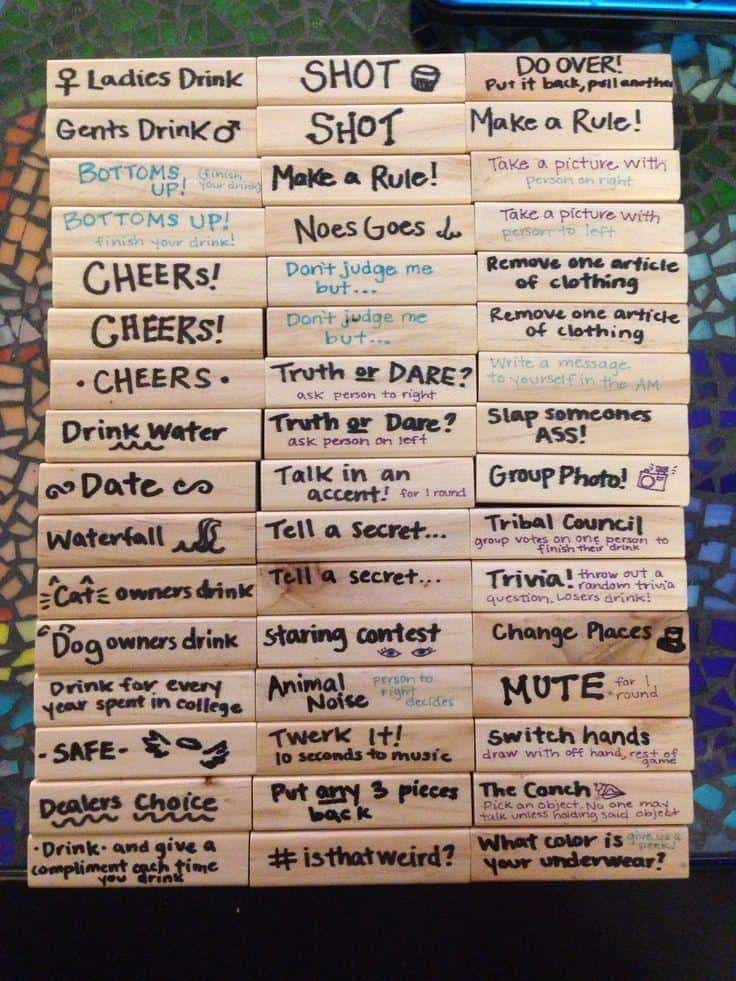 ♀ Ladies Drink
Gents Drink ♂
BOTTOMS UP! (finish
your drink)
BOTTOMS UP!
finish your drink!
CHEERS!
CHEERS!
• CHEERS •
Drink Water
Date
Waterfall
Cat owners drink
Dog owners drink
Drink for every
year spent in college
- SAFE -
Dealers Choice
• Drink • and give a
compliment each time
you drink
SHOT
SHOT
Make a Rule!
Noes Goes
Don't judge me
but...
Don't judge me
but...
Truth or DARE?
ask person to right
Truth or Dare?
ask person on left
Talk in an
accent! for 1 round
Tell a secret...
Tell a secret...
Staring contest
Animal
Noise
person to
right
decides
Twerk It!
10 seconds to music
Put any 3 pieces
back
# isthatweird?
DO OVER!
Put it back, pull another
Make a Rule!
Take a picture with
person on right
Take a picture with
person to left
Remove one article
of clothing
Remove one article
of clothing
Write a message
to yourself in the AM
Slap someones
ASS!
Group Photo!
Tribal Council
group votes on one person to
finish their drink
Trivia! throw out a
random trivia
question. Losers drink!
Change Places
MUTE for 1
round
Switch hands
draw with off hand, rest of
game
The Conch
Pick an object. No one may
talk unless holding said object
What color is
your underwear?
give us a
peek!